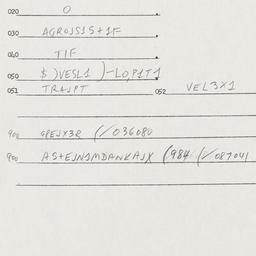 020 0
030 AGROJS1S+1F
040 TIF
050 $)VESL1 )-LO,P1T1
051 TRAJPT 052 VEL3X1
900 GPEJX3R (/036080
900 AS+EJN1MDANKAJX (984 (/087041